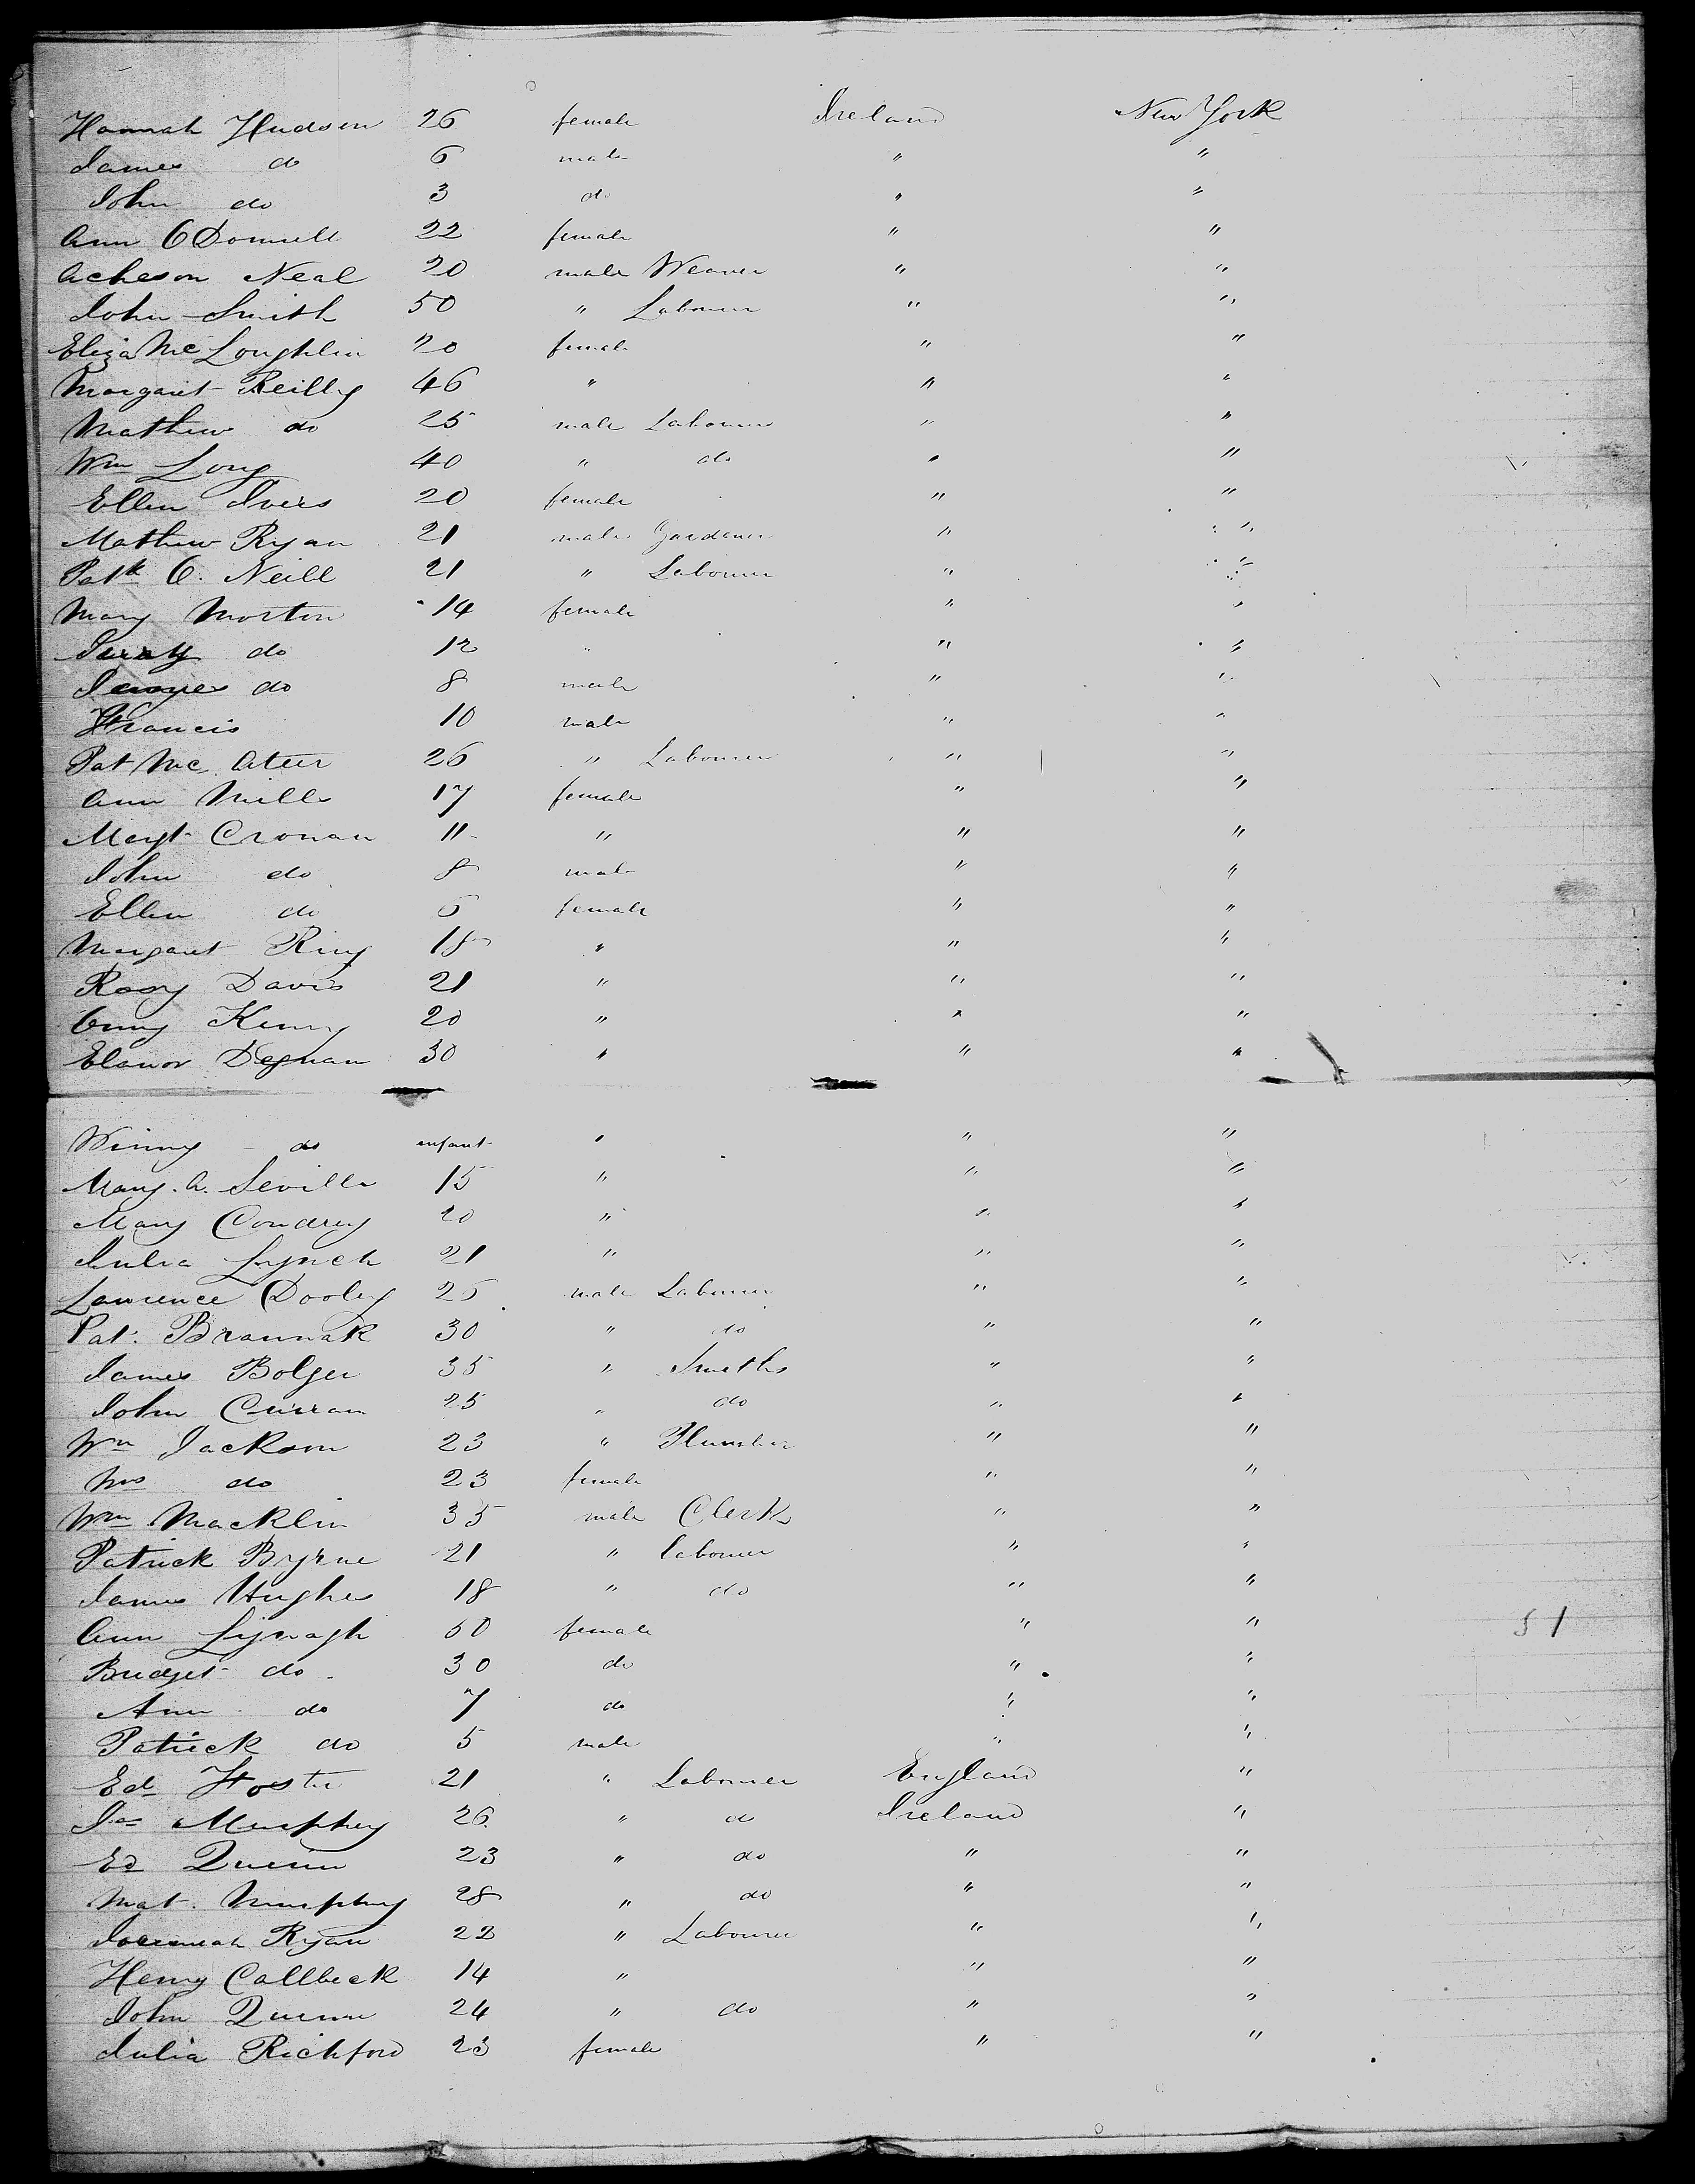 Hannah Hudson 26 female Ireland New York
James do 6 male " "
John do 3 do " "
Ann O Donnell 22 female " "
Acheson Neal 20 male Weaver " "
John Smith 50 " Labourer " "
Eliza Mc Loughlin 20 female " "
Margaret Reilly 46 " " "
Mathew do 25 male Labourer " "
Wm Long 40 " do " "
Ellen Ivers 20 female " "
Mathew Ryan 21 male Gardener " "
Patk O. Neill 21 " Labourer " "
Mary Morton 14 female " "
do 12 " " "
do 8 male " "
Francis 10 male " "
Pat Mc Ateer 26 " Labourer " "
Ann Mills 17 female " "
Margt Cronan 11 " " "
John do 8 male " "
Ellen do 6 female " "
Margaret Ring 18 " " "
Rosy Davis 21 " " "
Anny Kenny 20 " " "
Elanor Degnan 30 " " "
Winny do infant " " "
Mary. A. Seville 15 " " "
Mary Condrey 20 " " "
Julia Lynch 21 " " "
Lawrence Dooley 25 male Labourer " "
Pat. Brannak 30 " do " "
James Bolger 35 " Smiths " "
John Curran 25 " do " "
Wm Jackson 23 " Plumber " "
Mrs do 23 female " "
Wm Macklin 35 male Clerk " "
Patrick Byrne 21 " labourer " "
James Hughes 18 " do " "
Ann Lynagh 50 female " "
51
Bridget do 30 do " "
Ann do 7 do " "
Patrick do 5 male " "
Ed Foster 21 " Labourer England "
Jas Murphey 26 " do Ireland "
Ed Quinn 23 " do " "
Mat. Murphy 28 " do " "
Jeremiah Ryan 22 " Labourer " "
Henry Callbeck 14 " " "
John Quinn 24 " do " "
Julia Richford 23 female " "